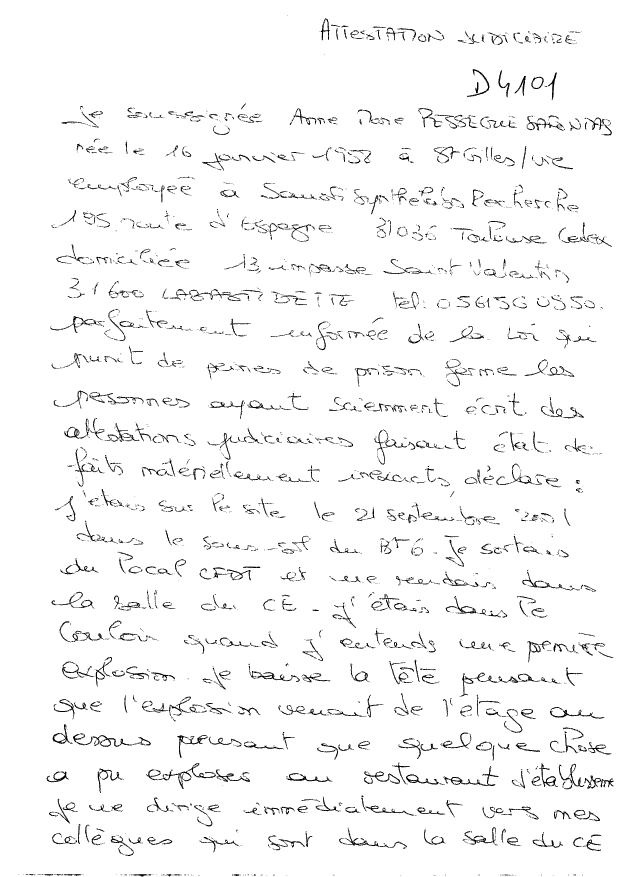 ATTESTATION JUDICIAIRE
D4101
Je soussignée Anne Marie PESSEGUE
née le 16 janvier 1952 à St Gilles/vie
employée à Sanofi Synthelabo Recherche
195 route d'Espagne 31036 Toulouse Cedex
domiciliée 13, impasse Saint Valentin
31600 LABASTIDETTE tel: 0561560550.
parfaitement informée de la loi qui
punit de peines de prison ferme les
personnes ayant sciemment écrit des
attestations judiciaires faisant état de
faits matériellement inexacts, déclare :
j'etais sur le site le 21 septembre 2001
dans le sous-sol du Bt 6. Je sortais
du local CFDT et me rendais dans
la salle du CE - j'étais dans le
Couloir quand j'entends une première
explosion. Je baisse la tête pensant
que l'explosion venait de l'étage au
dessus pensant que quelque chose
a pu exploser au restaurant d'établissem
Je me dirige immédiatement vers mes
collègues qui sont dans la salle du CE